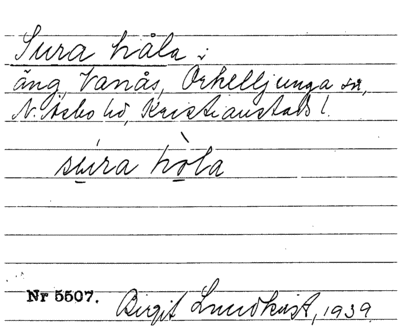 Sura håla :
äng, Vanås, Örkelljunga sn,
N. Åsbo hd, Kristianstads l.
súra hòla
Nr 5507.
Birgit Lundkvist, 1939.